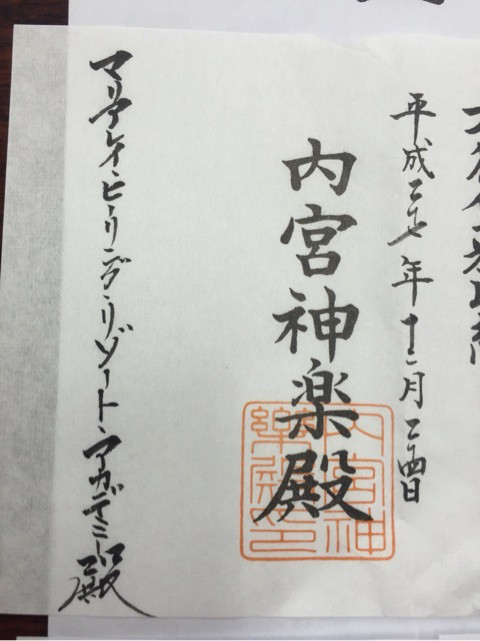 平成二十七年十二月二十四日
内宮神楽殿
内宮神
樂殿印
マリアケイ・ヒーリング・リゾート・アカデミー殿